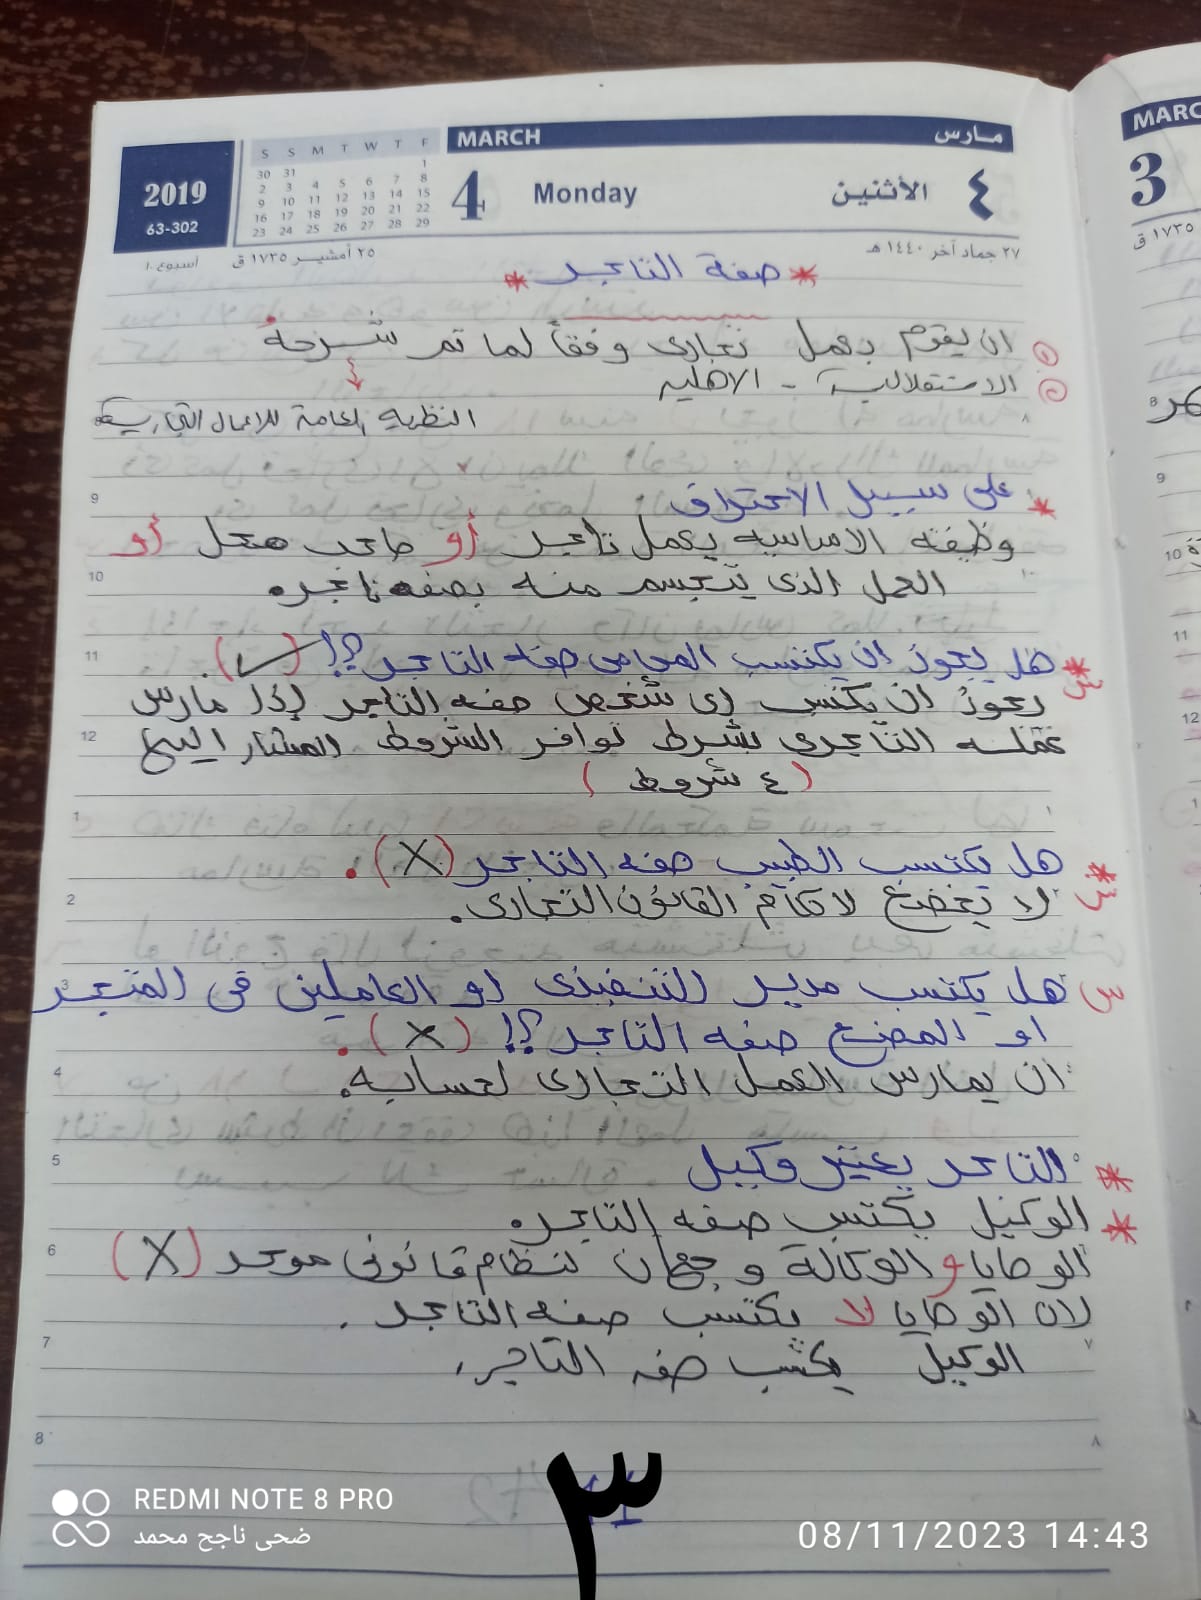 MARCH مارس
2019
63-302
S S M T W T F
1
30 31
2 3 4 5 6 7 8
9 10 11 12 13 14 15
16 17 18 19 20 21 22
23 24 25 26 27 28 29
4 Monday الأثنين ٤
٢٧ جماد آخر ١٤٤٠ هـ ٢٥ أمشير ١٧٣٥ ق أسبوع ١٠
* صفة التاجر *
① ان يقوم بعمل تجارى وفقاً لما تم شرحه
② الاستقلالية - الاهليه
النظريه العامة للاعمال التجاريه
* على سبيل الاحتراف
وظيفته الاساسيه يعمل تاجر أو صاحب محل أو
العمل الذى يتجسم منه بصفه تاجر.
* س هل يجوز ان يكتسب المحامى صفه التاجر؟! (✓).
يجوز ان يكتسب اى شخص صفه التاجر إذا مارس
عمله التاجرى بشرط توافر الشروط المشار اليها
(٤ شروط)
* س هل يكتسب الطبيب صفه التاجر (X).
لا يخضع لاحكام القانون التجارى.
س هل يكتسب مدير التنفيذى او العاملين فى المتجر
او المصنع صفه التاجر؟! (X).
ان يمارس العمل التجارى لحسابه.
* التاجر يعتبر وكيل
* الوكيل يكتسب صفه التاجر.
الوصايا والوكالة وجهان لنظام قانونى موحد (X)
لان الوصايا لا يكتسب صفه التاجر.
الوكيل يكتسب صفه التاجر.
٣
REDMI NOTE 8 PRO
ضحى ناجح محمد
08/11/2023 14:43
MARC
3
١٧٣٥ ق